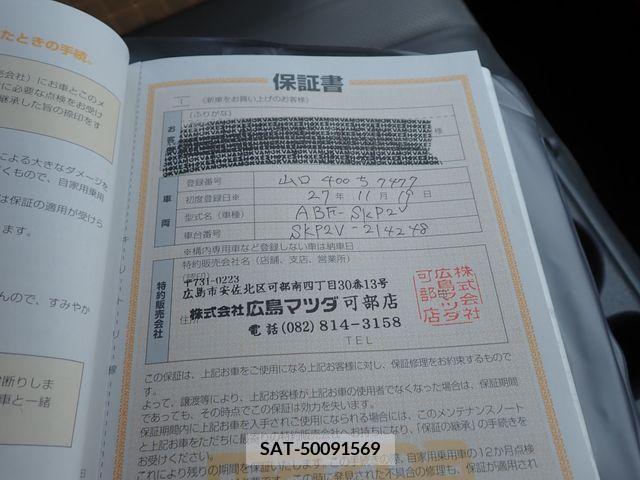 たときの手続。
売会社）にお車とこのメ
に必要な点検をお受け
継承した旨の捺印をす
による大きなダメージを
くもので、自家用乗用
は保証の適用が受けら
ます。
んので、すみやか
断りしま
車と一緒
キリトリ線
保証書
（新車をお買い上げのお客様）
（ふりがな）
お客様
様
車両
登録番号 山口 400 ち 7477
初度登録日※ 27年 11月 19日
型式名（車種） ABF-SKP2V
車台番号 SKP2V-214248
※構内専用車など登録しない車は納車日
特約販売会社
特約販売会社名（店舗、支店、営業所）
〒731-0223
広島市安佐北区可部南四丁目30番13号
住所
株式会社広島マツダ可部店
電話(082)814-3158
TEL
株式会社
広島マツダ
可部店
この保証は、上記お車をご使用になる上記お客様に対し、保証修理をお約束するもので
す。
よって、譲渡等により、上記お客様が上記お車の使用者でなくなった場合は、保証期間
であっても、その時点でこの保証は効力を失います。
保証期間内に上記お車を入手されご使用になられる場合には、このメンテナンスノート
と上記お車をただちに最寄
お持ちになり、「保証の継承」の手続きを
お受けください。
これにより残りの期間を保証いたします。
自家用乗用車の12か月点検
この時に発見された不具合の修理も、保証が適用され
SAT-50091569